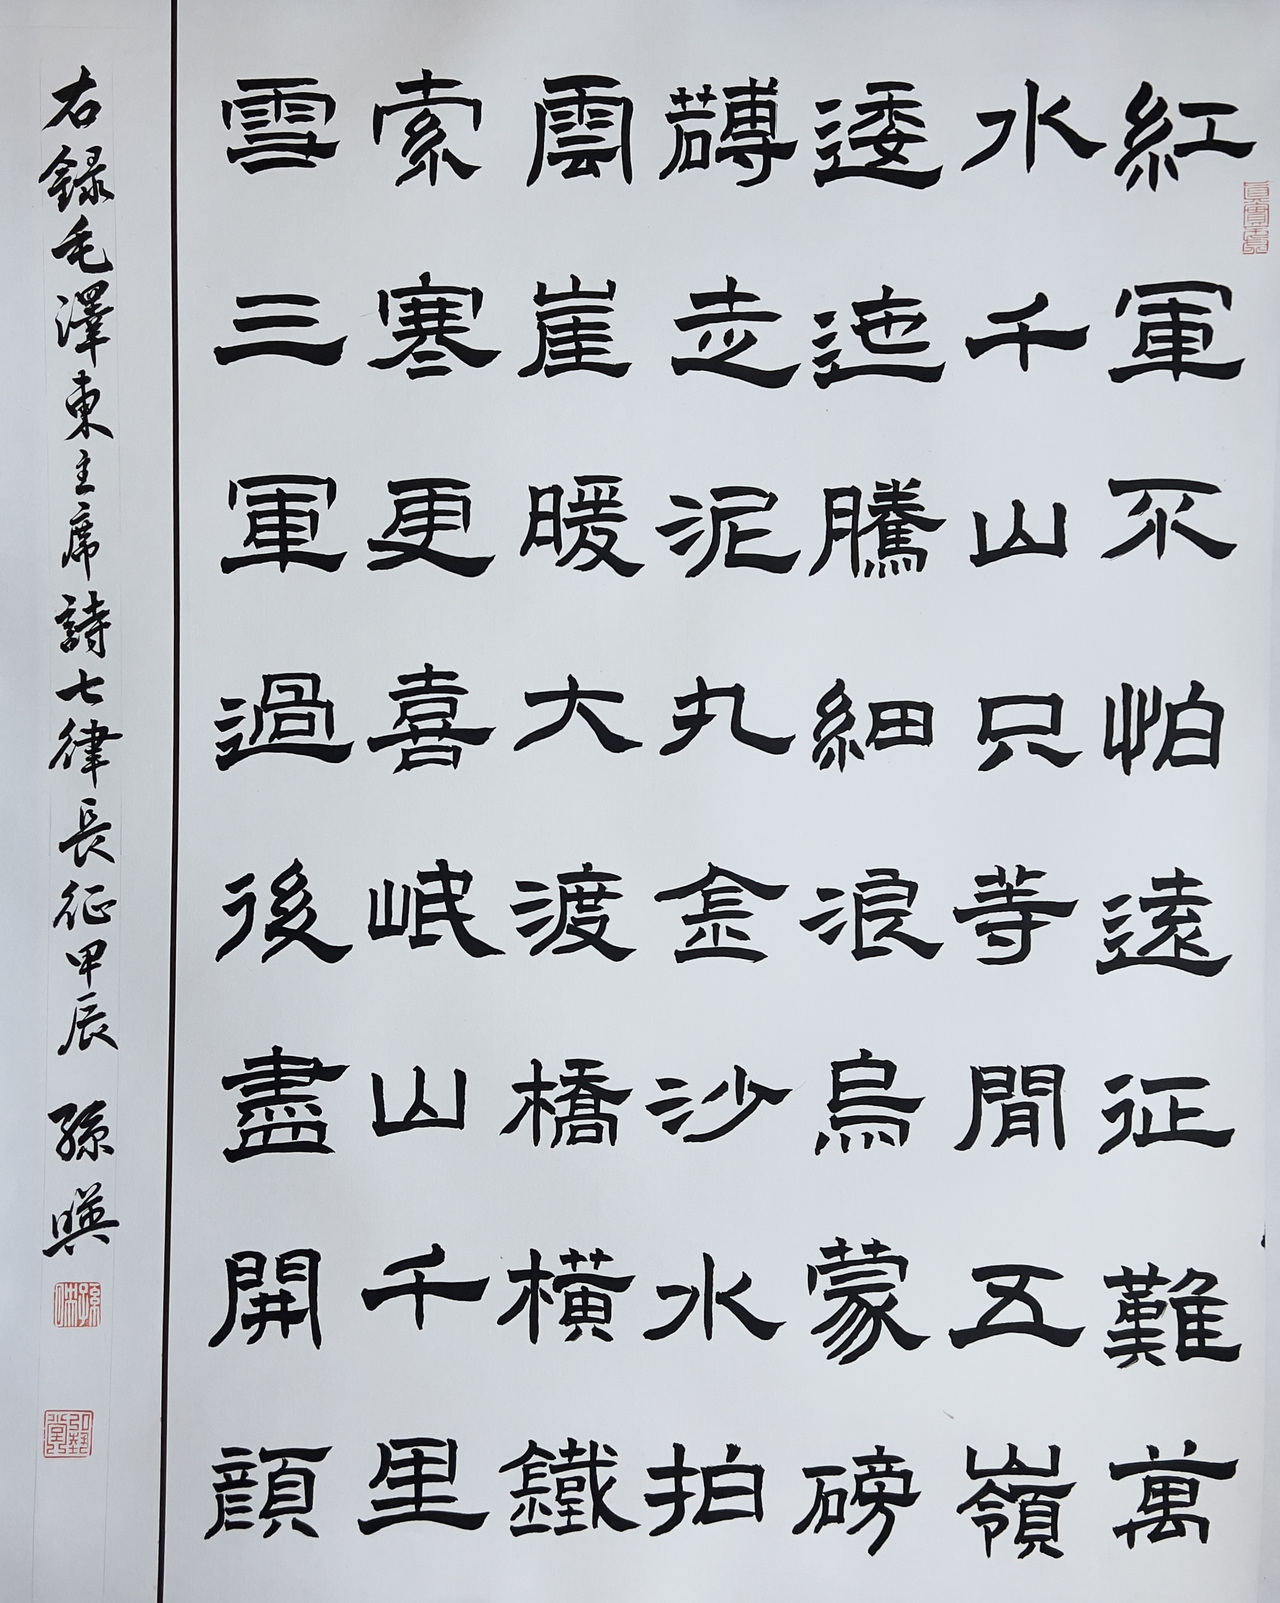 紅軍不怕遠征難萬
水千山只等閒五嶺
逶迤騰細浪烏蒙磅
礴走泥丸金沙水拍
雲崖暖大渡橋橫鐵
索寒更喜岷山千里
雪三軍過後盡開顏
右錄毛澤東主席詩七律長征甲辰 孫暎